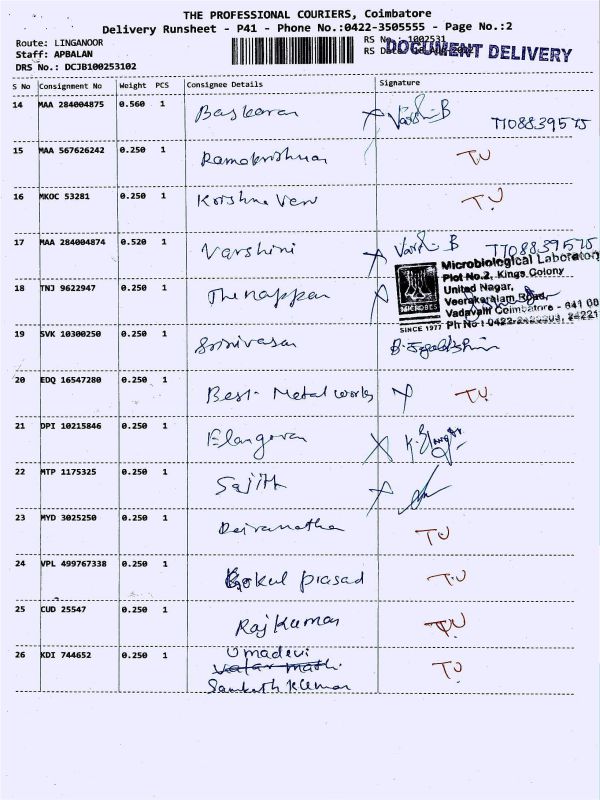 THE PROFESSIONAL COURIERS, Coimbatore
Delivery Runsheet - P41 - Phone No.:0422-3505555 - Page No.:2
Route: LINGANOOR RS No.: 1002531
Staff: APBALAN RS Date
DOCUMENT DELIVERY
DRS No.: DCJB100253102
S No Consignment No Weight PCS Consignee Details Signature
14 MAA 284004875 0.560 1 Baskaran Varshi B 7708839575
15 MAA 567626242 0.250 1 Ramakrishnan T.U
16 MKOC 53281 0.250 1 Krishna Veni T.U
17 MAA 284004874 0.520 1 Varshini Varshi B 7708839575
Microbiological Laboratory
Plot No.2, Kings Colony
United Nagar,
Veerakeralam Road,
Vadavalli Coimbatore - 641 00
MICROBES
SINCE 1977 Ph No : 0422
18 TNJ 9622947 0.250 1 Thenappan
19 SVK 10300250 0.250 1 Srinivasan
20 EDQ 16547280 0.250 1 Best Metal works T.U.
21 DPI 10215846 0.250 1 Elangovan
22 MTP 1175325 0.250 1 Sajith
23 MYD 3025250 0.250 1 TU
24 VPL 499767338 0.250 1 Gokul prasad T.U
25 CUD 25547 0.250 1 Rajkumar TU
26 KDI 744652 0.250 1 Umadevi TU
Sampath Kumar